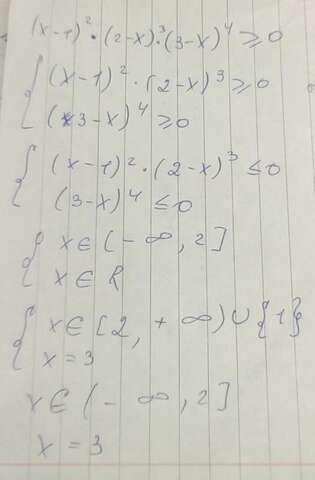 (x-1)²·(2-x)³·(3-x)⁴⩾0
{ (x-1)²·(2-x)³⩾0
(3-x)⁴⩾0
{ (x-1)²·(2-x)³≤0
(3-x)⁴≤0
{ x∈(-∞,2]
x∈R
{ x∈[2,+∞)∪{1}
x=3
x∈(-∞,2]
x=3